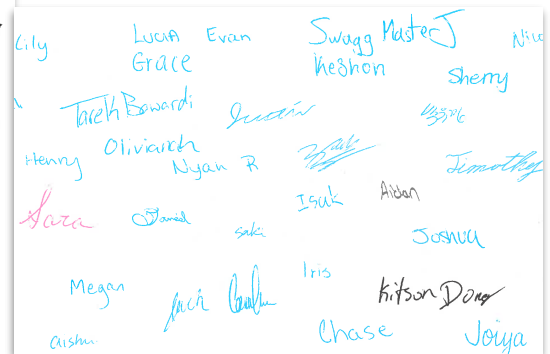 Lily LUCIA Evan Swagg MasterJ
Grace Keshon Sherry
Tarek Bawardi Justin
Henry Nyan R Timothy
Sara Isak Aidan
saki Joshua
Megan Iris Kitson Dong
Jack
aishu Chase Joiya